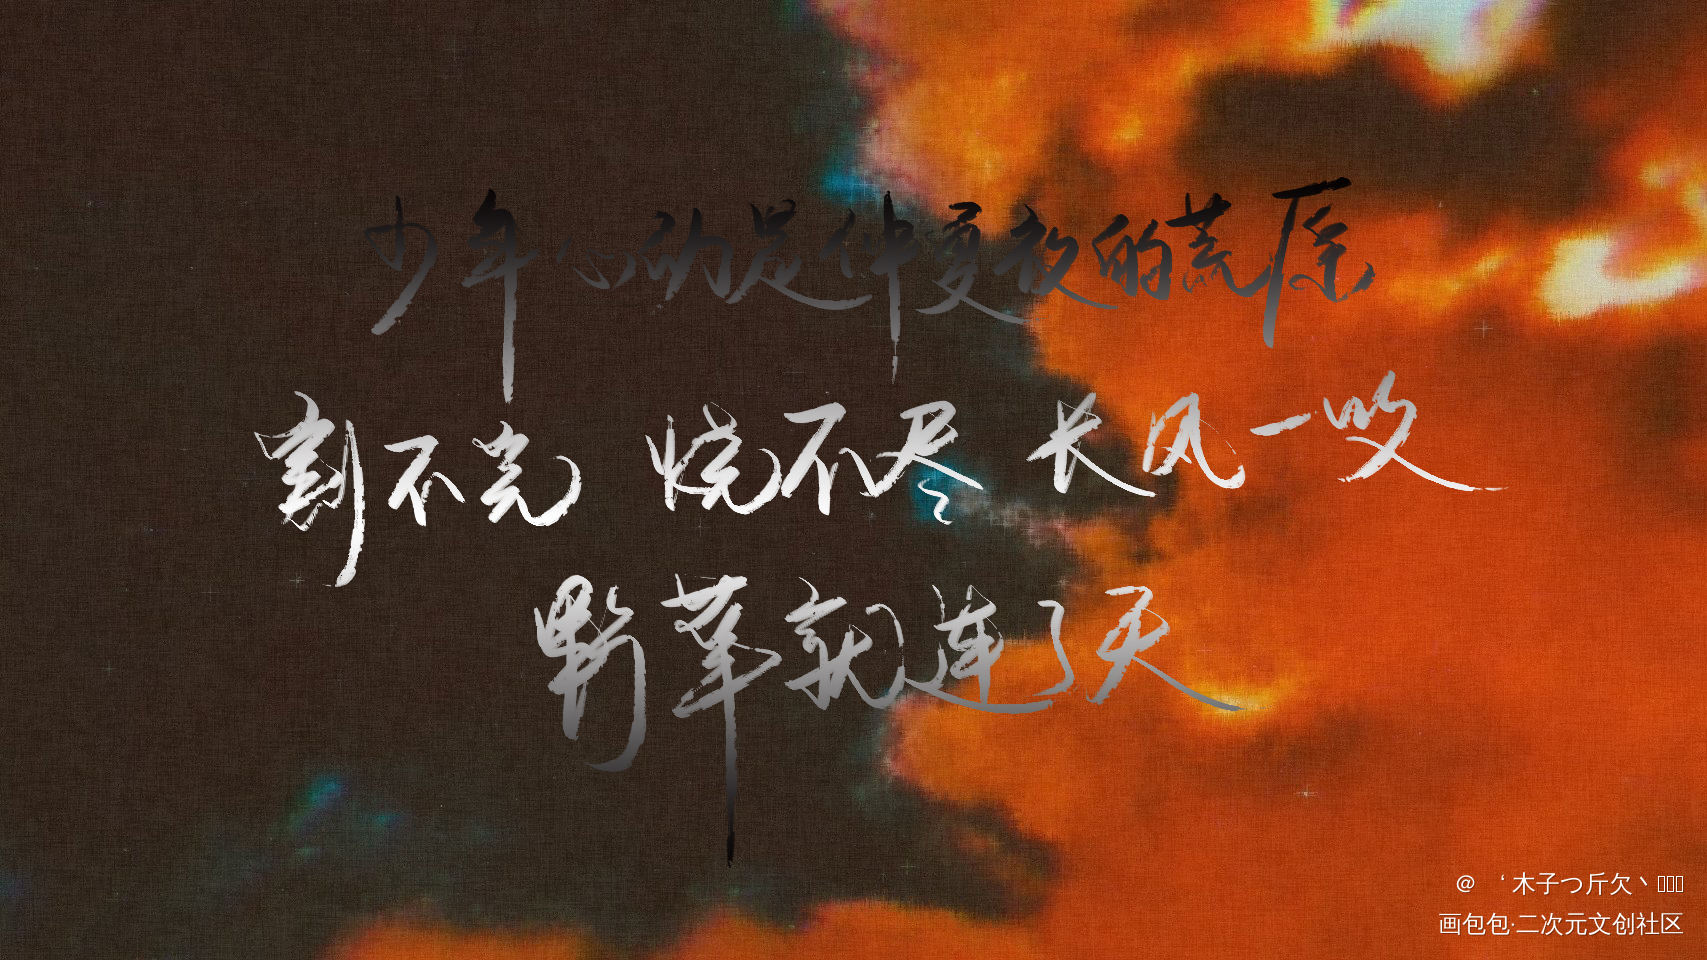 少年心动是仲夏夜的荒原
割不完 烧不尽 长风一吹
野草就连了天
@ ‘ 木子つ斤欠丶
画包包·二次元文创社区